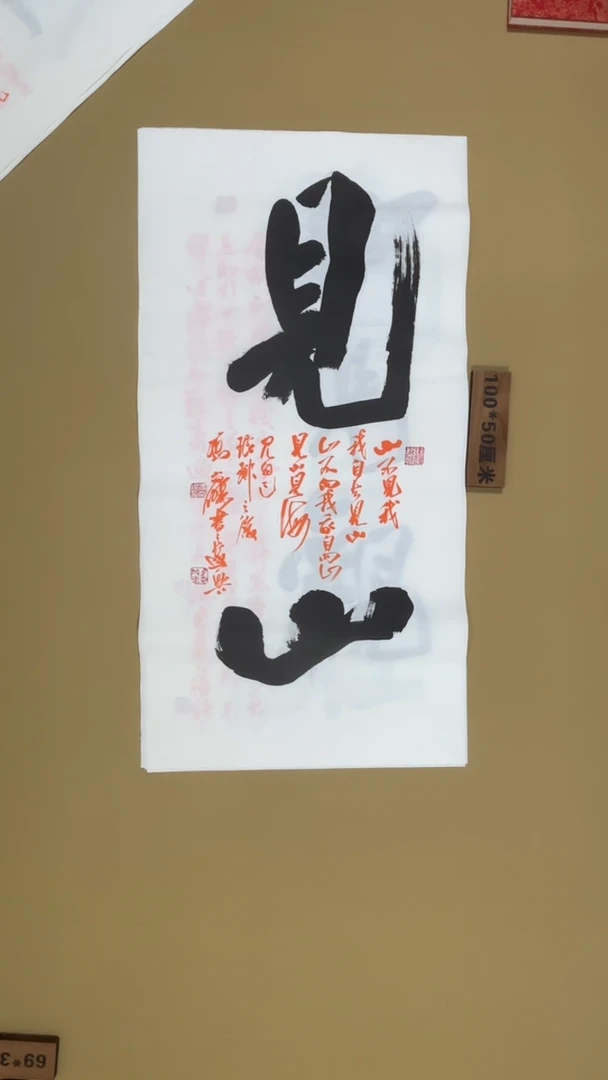 見
山
山不見我
我自去見山
山不向我 我自向山
見山見海
見自己
书之遣興
100*50厘米
69*3